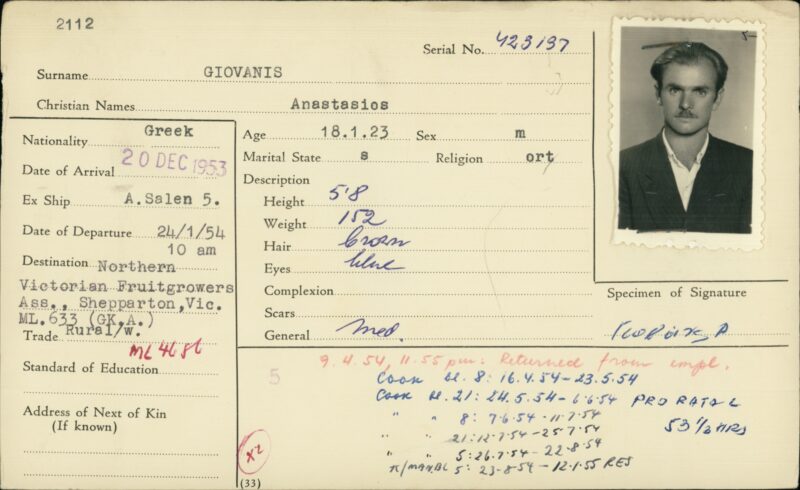 2112
Serial No. 423197
Surname GIOVANIS
Christian Names Anastasios
Nationality Greek
Date of Arrival 20 DEC 1953
Ex Ship A.Salen 5.
Date of Departure 24/1/54
10 am
Destination Northern
Victorian Fruitgrowers
Ass., Shepparton,Vic.
ML.633 (GK.A.)
Trade Rural/w.
ML 4686
Standard of Education
Address of Next of Kin
(If known)
Age 18.1.23 Sex m
Marital State s Religion ort
Description
Height 5'8
Weight 152
Hair brown
Eyes blue
Complexion
Scars
General Med.
Specimen of Signature
5
9.4.54, 11.55 pm: Returned from empl.
Cook bl. 8: 16.4.54-23.5.54
Cook bl. 21: 24.5.54-6.6.54 PRO RATA L
" " 8: 7.6.54-11.7.54 53 1/2 HRS
" " 21: 12.7.54-25.7.54
" " 5: 26.7.54-22.8.54
BL 5: 23.8.54-12.1.55 RES
X2
(33)